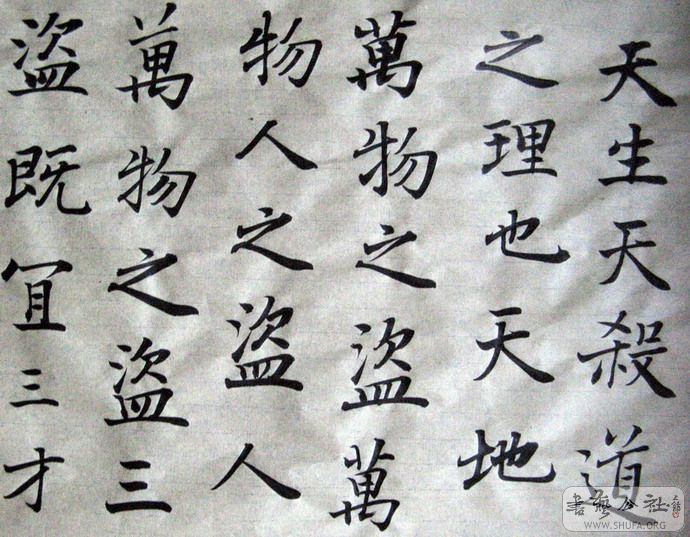 天生天殺道
之理也天地
萬物之盜萬
物人之盜人
萬物之盜三
盜既冝三才
書藝公社
WWW.SHUFA.ORG